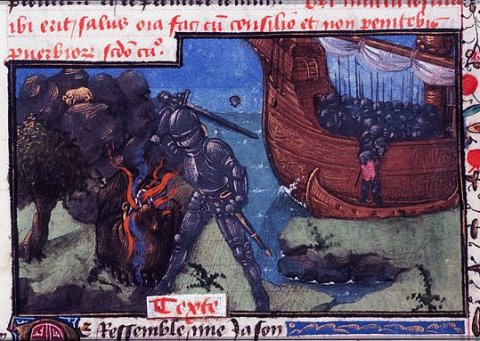 ibi erit salus oīa fac cū consilio et non penitebit
ꝓuerbioꝝ scdo cᵒ.
Texte
Ressemble une Jason